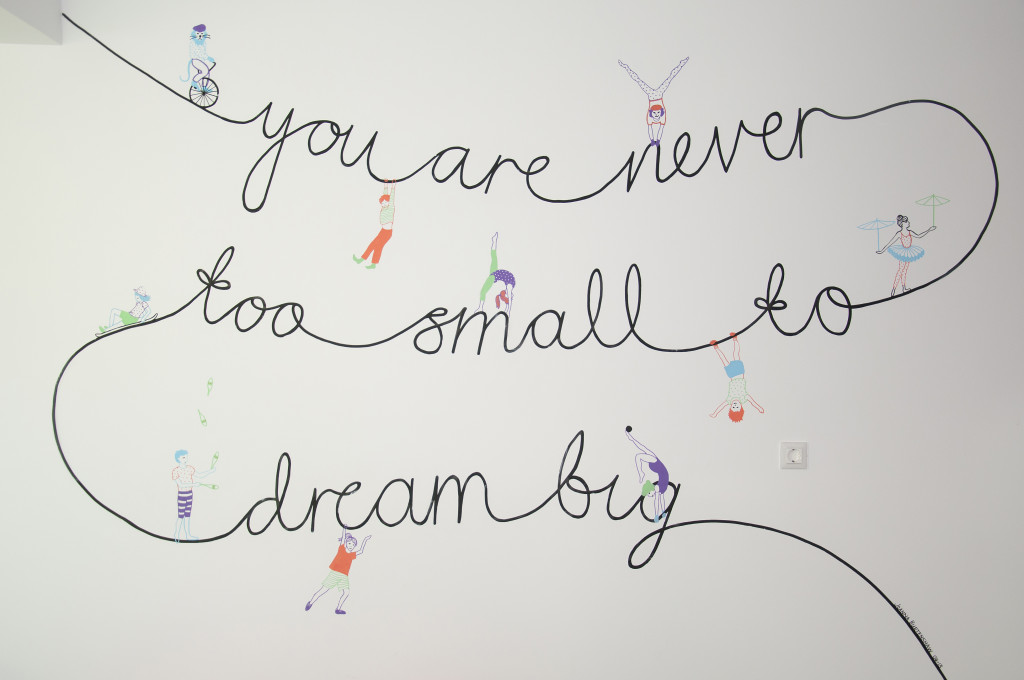 you are never
too small to
dream big